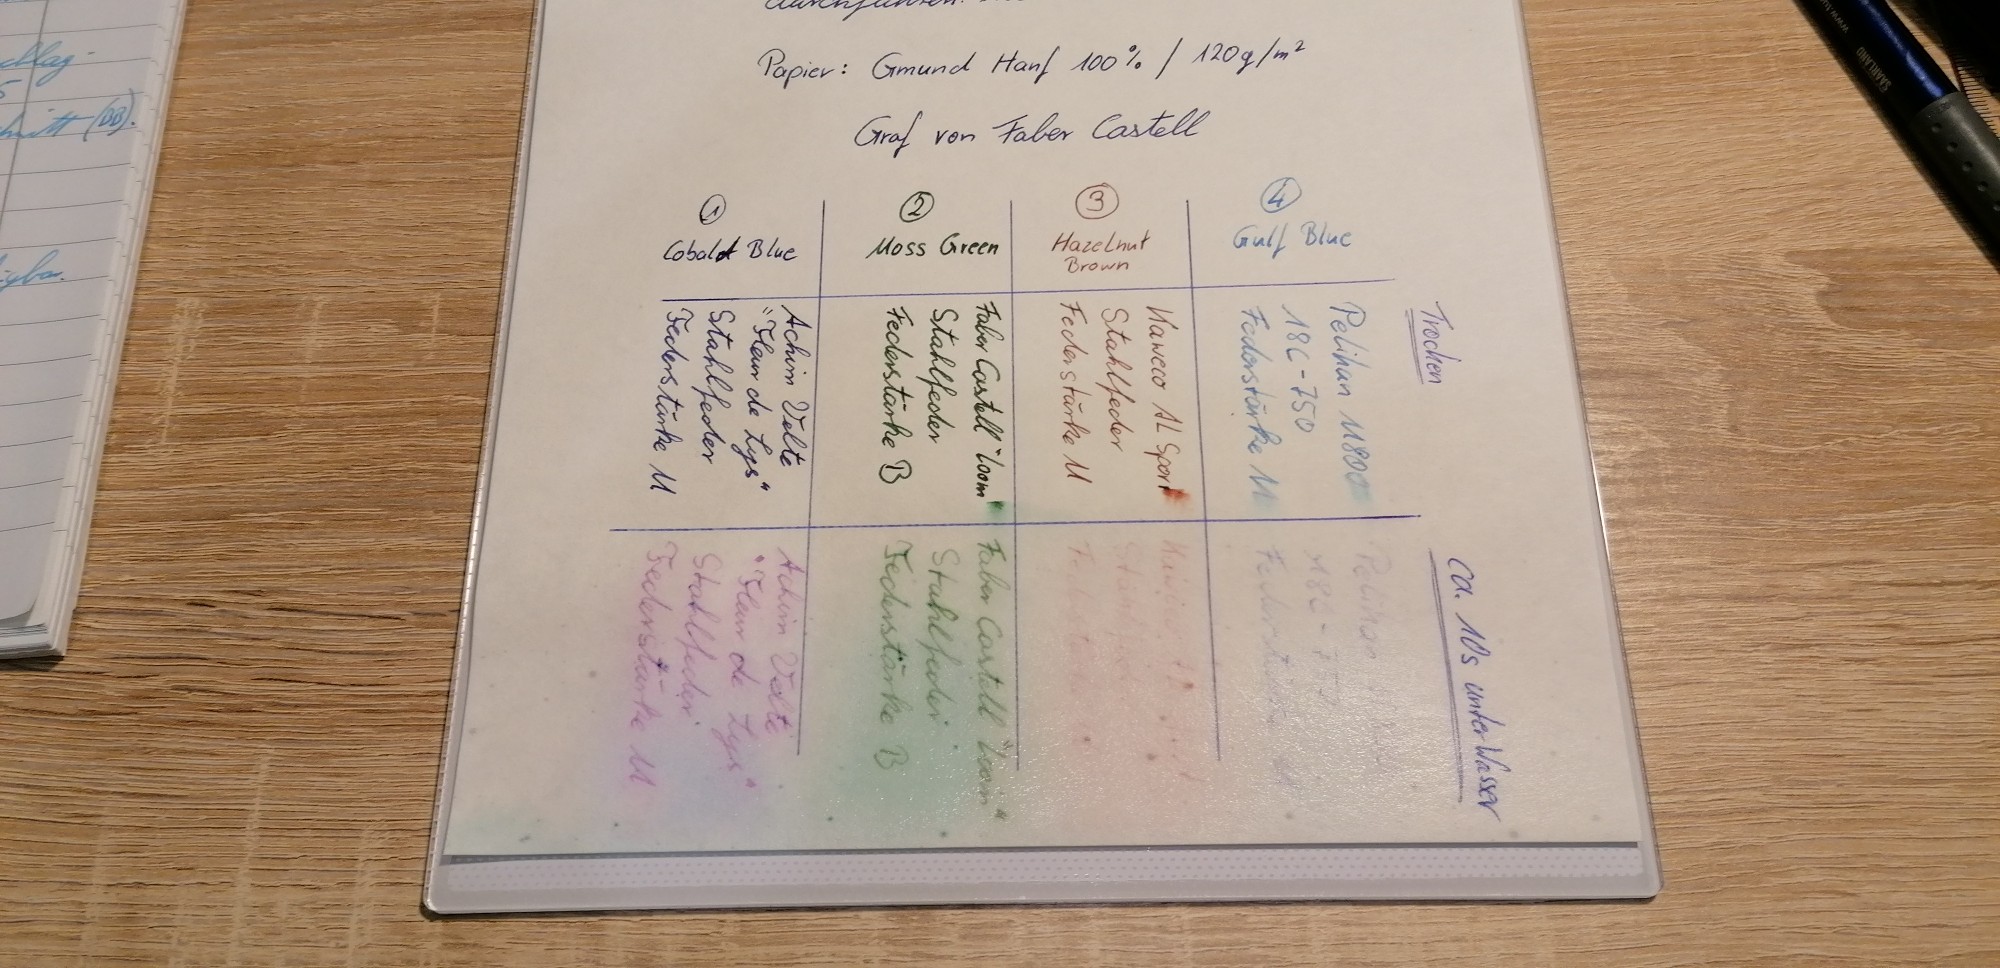 durchführen.
Papier: Gmund Hanf 100% / 120g/m²
Graf von Faber Castell
1
Cobald Blue
2
Moss Green
3
Hazelnut
Brown
4
Gulf Blue
Achim Velte
"Fleur de Lys"
Stahlfeder
Federstärke M
Faber Castell "Loom"
Stahlfeder
Federstärke B
Kaweco AL Sport
Stahlfeder
Federstärke M
Pelikan M800
18C-750
Federstärke M
Trocken
Achim Velte
"Fleur de Lys"
Stahlfeder
Federstärke M
Faber Castell "Loom"
Stahlfeder
Federstärke B
Pelikan
18C-
ca. 10s unter Wasser
schlag-
(BB).
SAARLAND